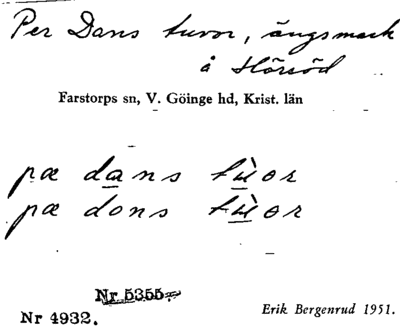 Per Dans tuvor, ängsmark
å Hörröd
Farstorps sn, V. Göinge hd, Krist. län
pæ dans tùor
pæ dons tùor
Nr 5355.
Nr 4932.
Erik Bergenrud 1951.